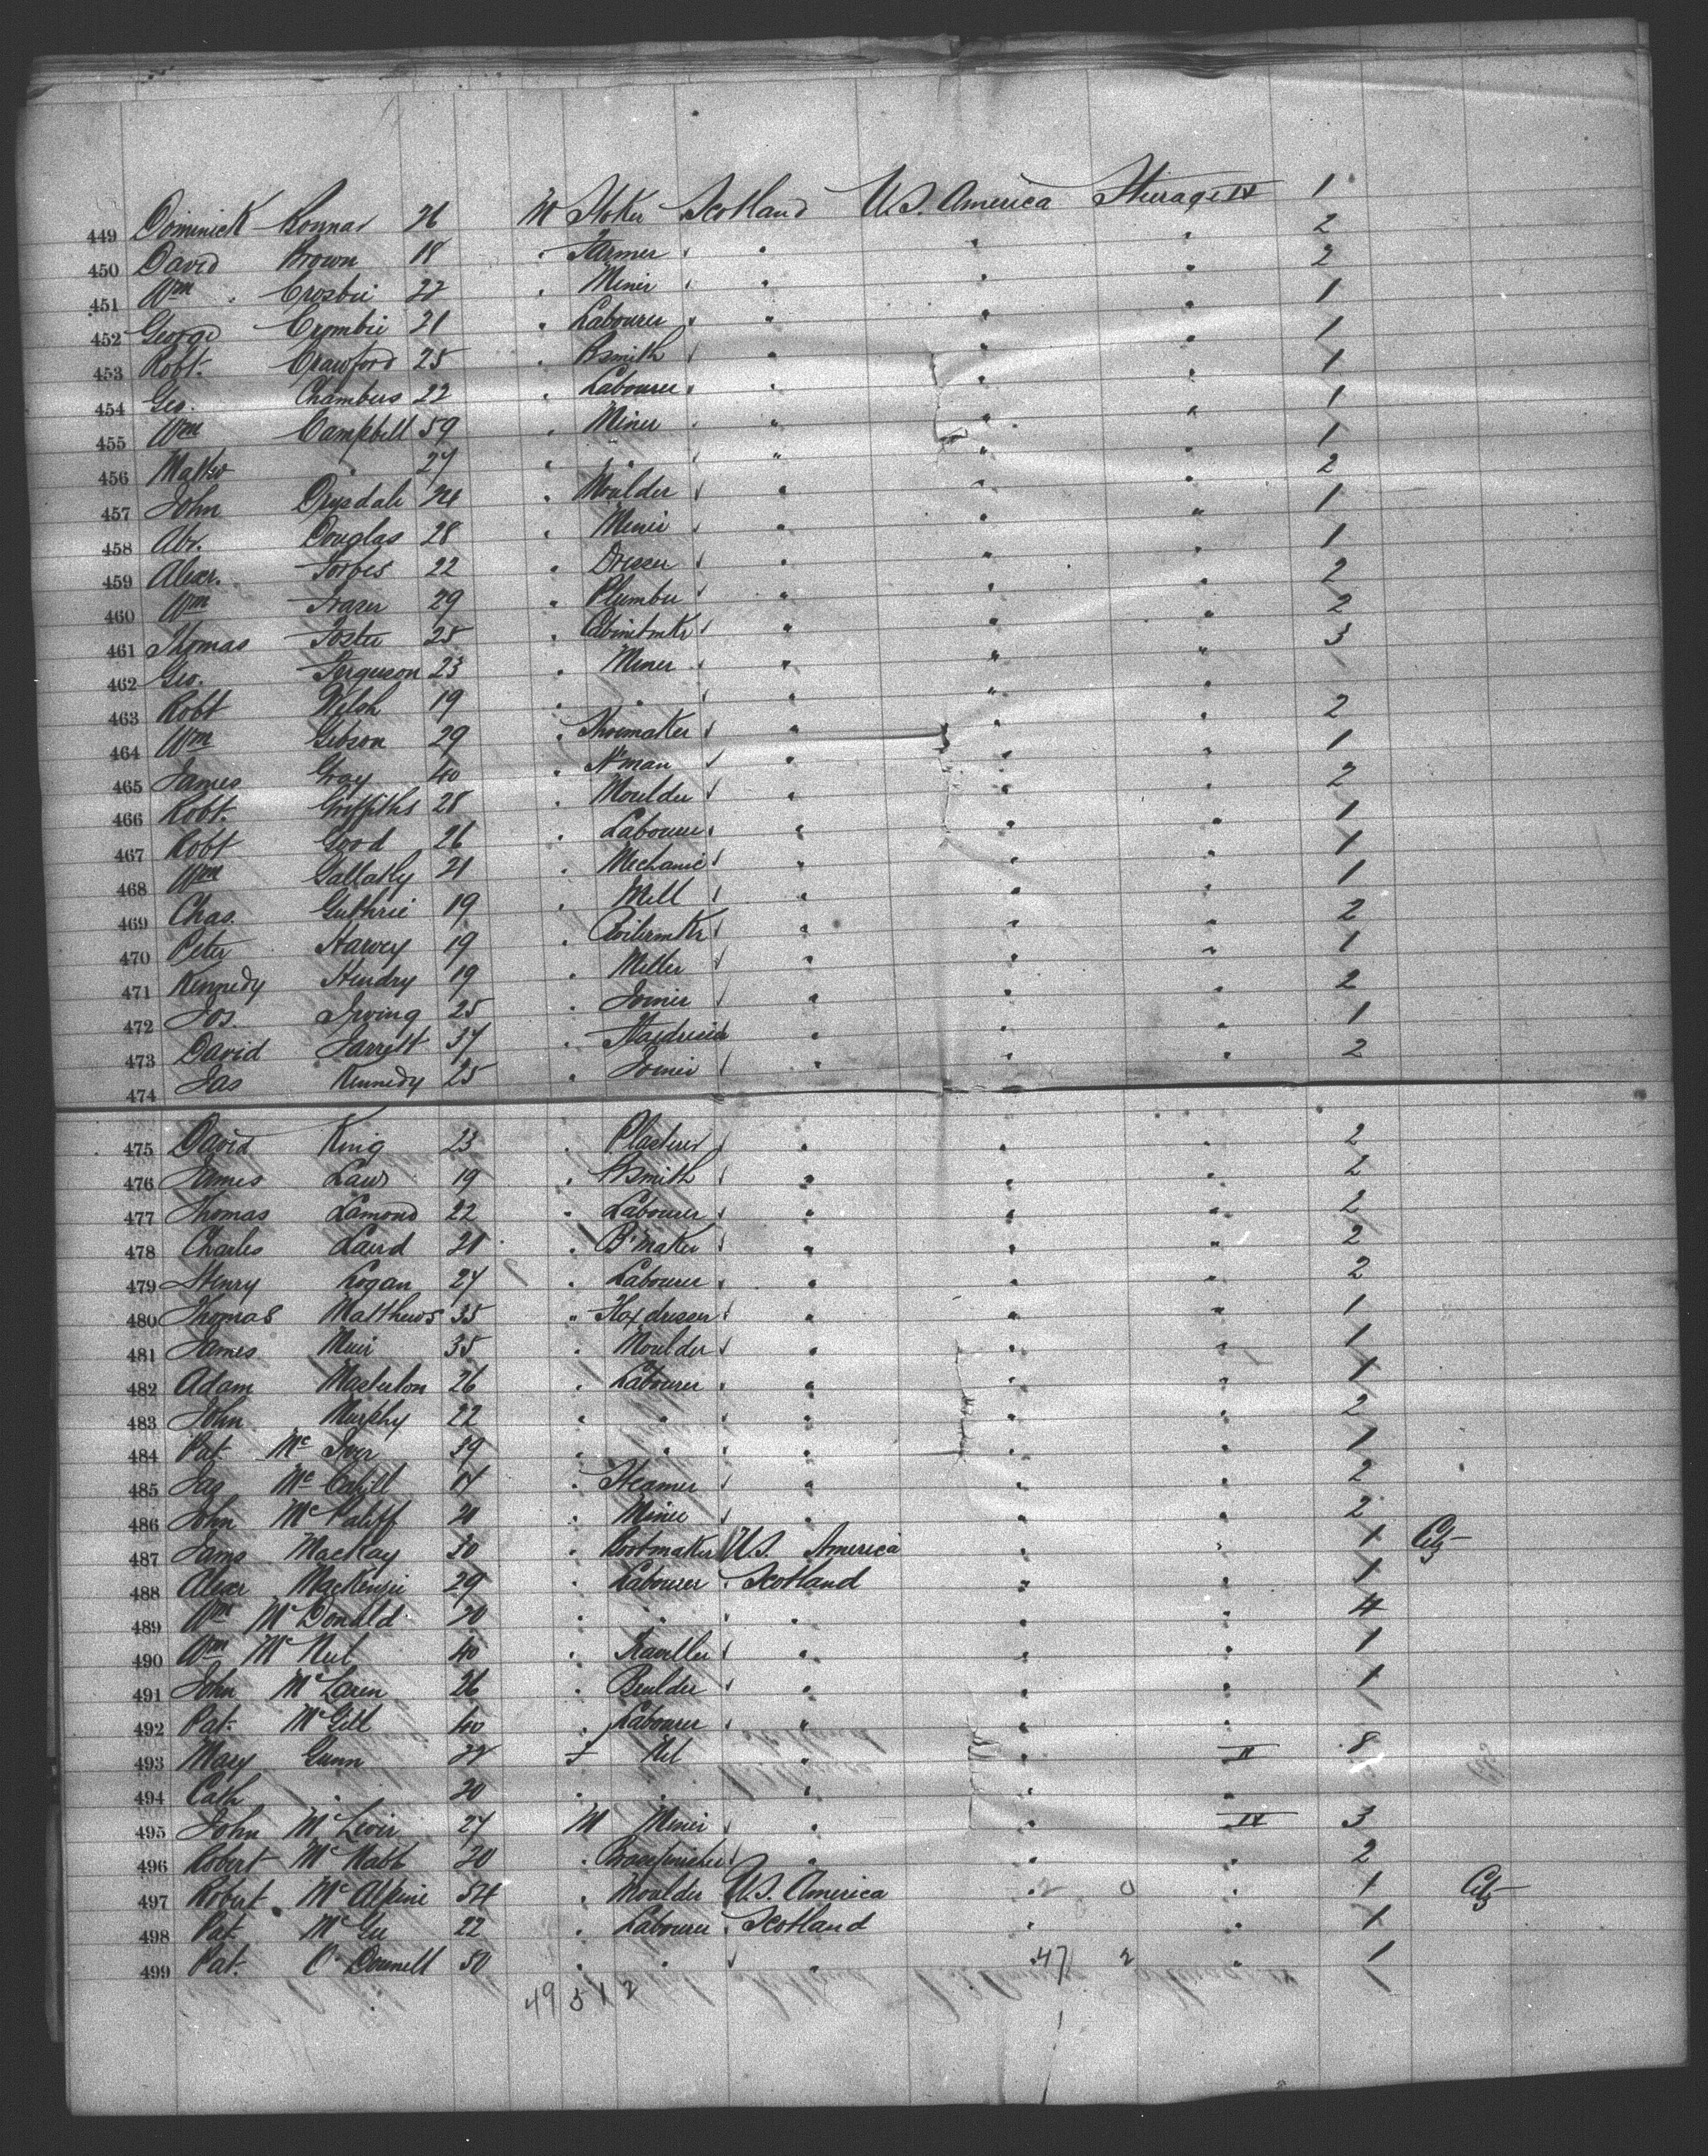 449 Dominick Bonnar 26 M Stoker Scotland U.S. America Steerage IV 1
450 David Brown 18 " Farmer " " " 2
451 Wm Crosbie 22 " Miner " " " 2
452 George Crombie 21 " Labourer " " " 1
453 Robt. Crawford 25 Bsmith " " " 1
454 Geo. Chambers 22 " Labourer " " " 1
455 Wm Campbell 59 " Miner " " " 1
456 " 27 " " " " " 1
457 John Drysdale 24 " Moulder " " " 2
458 Abr. Douglas 28 " Miner " " " 1
459 Alexr. Forbes 22 " Dresser " " " 1
460 Wm Frazer 29 " Plumber " " " 2
461 Thomas Foster 25 " Cabinetmkr " " " 2
462 Geo. Ferguson 23 " Miner " " " 3
463 Robt Welsh 19 " " " " "
464 Wm Gibson 29 " Shoemaker " " " 2
465 James Gray 40 " " " " 1
466 Robt. Griffiths 28 " Moulder " " " 2
467 Robt Good 26 " Labourer " " " 1
468 Wm Gallatly 21 " Mechanic " " " 1
469 Chas. Guthrie 19 " Mill " " " 1
470 Peter Harvey 19 " Boilermkr " " " 2
471 Kennedy Hendry 19 " Miller " " " 1
472 Jos. Irving 25 " Joiner " " " 2
473 David Jarrett 37 " " " " 1
474 Jas Kennedy 25 " Joiner " " " 2
475 David King 23 " Plasterer " " " 2
476 James Law 19 " Bsmith " " " 2
477 Thomas Lamond 22 " Labourer " " " 2
478 Charles Laird 21 " B'maker " " " 2
479 Henry Logan 27 " Labourer " " " 2
480 Thomas Matthews 35 " Flaxdresser " " " 1
481 James Muir 35 " Moulder " " " 1
482 Adam Masterton 26 " Labourer " " " 1
483 John Murphy 22 " " " " " 2
484 Pat Mc Iver 39 " " " " " 1
485 Jas Mc Cahill 14 " Steamer " " " 2
486 John 20 " Miner " " " 2
487 James MacKay 30 " Bootmaker U.S. America " 1 Citz
488 Alexr MacKenzie 29 " Labourer Scotland " " 1
489 Wm McDonald 20 " " " " " 4
490 Wm McNeil 40 " Traveller " " " 1
491 John McLaren 26 " Builder " " " 1
492 Pat. McGill 40 " Labourer " " "
493 Mary Gunn 22 F Nil " " II 8
494 Cath " 20 " " " "
495 John 27 M Miner " " IV 3
496 Robert McNabb 20 " Brassfinisher " " " 2
497 Robert McAlpine 54 " Moulder U.S. America " 0 " 1 Citz
498 Pat McGee 22 " Labourer Scotland " " 1
499 Pat. O'Donnell 50 " " " 47 2 " 1
49 5 1 2